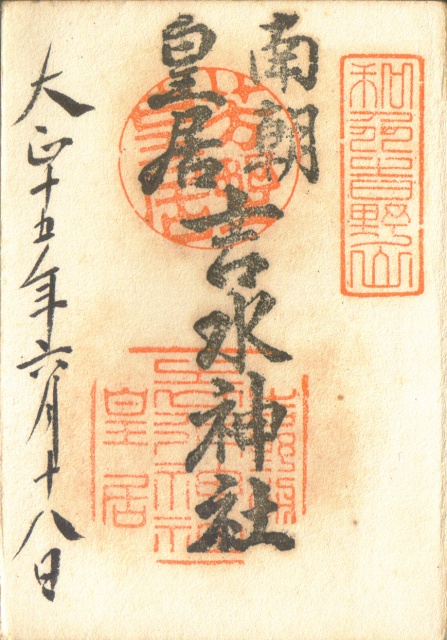 和州吉野山
南朝
皇居
吉水神社
大正十五年六月十八日
皇居